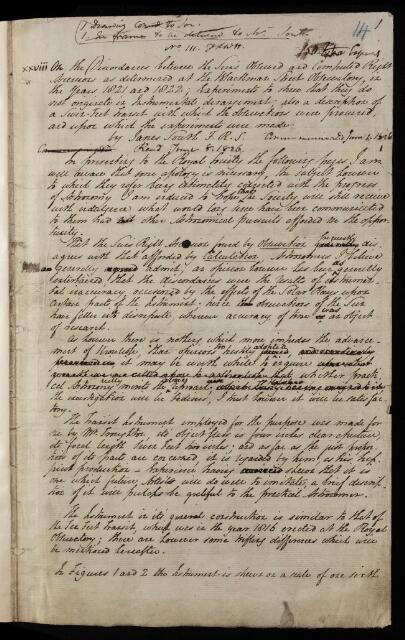 1 Drawing to Sec.
1 to be returned to Mr. South
No III.
1
xxviii On the Discordances between the Sun's Observed and Computed Right
Ascensions as determined at the Blackman Street Observatory, in
the Years 1821 and 1822; Experiments to shew that they do
not originate in Instrumental derangement; also a description of
a Seven-feet transit with which the Observations were procured,
and upon which the experiments were made
by James South F.R.S. Communicated June 2. 1826
Read June 8. 1826.
In presenting to the Royal Society the following pages, I am
well aware that some apology is necessary, the subject however
to which they refer being intimately connected with the progress
of Astronomy I am induced to hope that the Society will still receive
with indulgence what would long since have been communicated
to them had not other Astronomical pursuits afforded me the oppor-
tunity.
That the Sun's Right Ascensions found by Observation frequently dis-
agree with that afforded by Calculation, Astronomers I believe
generally admit; an opinion however has been generally
entertained that the discordances were the results of instrumen-
tal inaccuracy occasioned by the effect of the Solar Rays upon
certain parts of the instrument: hence observations of the Sun
have fallen into disrepute, wherever accuracy of time was an object
of research.
As however there is nothing which more impedes the advance-
ment of Knowledge than opinions hastily adopted
it may be worth while to enquire
whether pract-
ical Astronomy really merits the
the investigation will be tedious, I trust however it will be satisfac-
tory.
The Transit Instrument employed for the purpose was made for
me by Mr. Troughton, its object glass has four inches clear aperture,
its focal length seven feet inches; and as far as the just propor-
tion of its parts are concerned, it is regarded by him as his hap-
piest production – experience having shewn that it is
one which future Artists will do well to imitate, a brief descrip-
tion of it will perhaps be grateful to the practical Astronomer.
The instrument in its general construction is similar to that of
the Ten Feet transit, which was in the year 1816 erected at the Royal
Observatory; there are however some trifling differences which will
be mentioned hereafter.
In Figures 1 and 2 the Instrument is shewn on a scale of one sixth